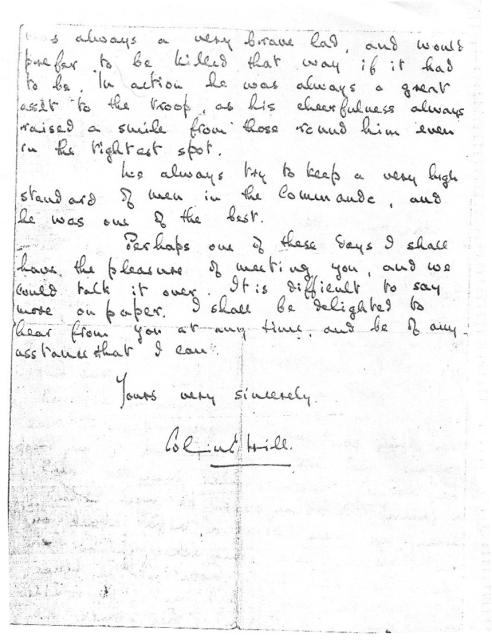 s always a very brave lad, and would
prefer to be killed that way if it had
to be. In action he was always a great
asset to the troop, as his cheerfulness always
raised a smile from those round him even
in the tightest spot.
We always try to keep a very high
standard of men in the Commando, and
he was one of the best.
Perhaps one of these days I shall
have the pleasure of meeting you, and we
could talk it over. It is difficult to say
more on paper. I shall be delighted to
hear from you at any time, and be of any
asstance that I can.
Yours very sincerely.
Hill.